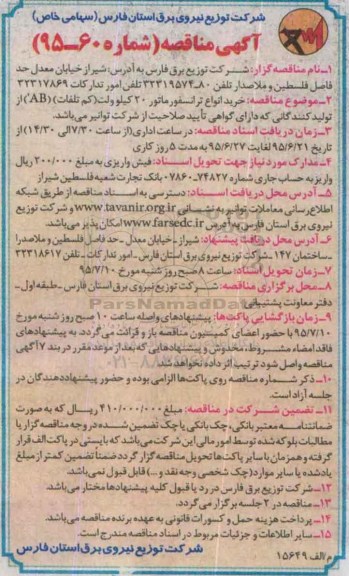 شرکت توزیع نیروی برق استان فارس (سهامی خاص)
آگهی مناقصه (شماره ۶۰-۹۵)
۱-نام مناقصه گزار: شرکت توزیع برق فارس به آدرس: شیراز خیابان معدل حد
فاصل فلسطین و ملاصدار تلفن ۸۰-۳۲۳۱۹۵۷۴ تلفن امور تدارکات ۳۲۳۱۷۸۶۹
۲-موضوع مناقصه: خرید انواع ترانسفورماتور ۲۰ کیلو ولت (کم تلفات) (AB) از
تولید کنندگانی که دارای گواهی تأیید صلاحیت از شرکت توانیر می باشد.
۳-زمان دریافت اسناد مناقصه: در ساعت اداری (از ساعت ۷/۳۰ الی ۱۴/۳۰) از
تاریخ ۹۵/۶/۲۱ لغایت ۹۵/۶/۲۷ به مدت ۵ روز کاری
۴-مدارک مورد نیاز جهت تحویل اسناد: فیش واریزی به مبلغ ۲۰۰/۰۰۰ ریال
واریز به حساب جاری شماره ۰۷۸۶۰-۷۴۸۲۷ بانک تجارت شعبه فلسطین شیراز
۵-آدرس محل دریافت اسناد: دسترسی به اسناد مناقصه از طریق شبکه
اطلاع رسانی معاملات توانیر به نشانی www.tavanir.org.ir و شرکت توزیع
نیروی برق استان فارس به آدرس www.farsedc.ir امکان پذیر می باشد.
۶-آدرس محل دریافت پیشنهاد: شیراز-خیابان معدل-حد فاصل فلسطین و ملاصدرا
-ساختمان ۱۴۷-شرکت توزیع نیروی برق استان فارس-امور تدارکات-تلفن ۳۲۳۱۸۶۱۷
۷-زمان تحویل اسناد: ساعت ۸ صبح روز شنبه مورخ ۹۵/۷/۱۰
۸-محل برگزاری مناقصه: شرکت توزیع نیروی برق استان فارس-طبقه اول-
دفتر معاونت پشتیبانی
۹-زمان بازگشایی پاکت ها: پیشنهادهای واصله ساعت ۱۰ صبح روز شنبه مورخ
۹۵/۷/۱۰ با حضور اعضای کمیسیون مناقصه باز و قرائت می گردد، به پیشنهادهای
فاقد امضاء مشروط، مخدوش و پیشنهادهایی که بعد از موعد مقرر در بند ۷ آگهی
مناقصه واصل شود ترتیب اثر داده نخواهد شد.
۱۰-ذکر شماره مناقصه روی پاکت ها الزامی بوده و حضور پیشنهاددهندگان در
جلسه آزاد است.
۱۱-تضمین شرکت در مناقصه: مبلغ ۴۱۰/۰۰۰/۰۰۰ ریال که به صورت
ضمانتنامه معتبر بانکی، چک بانکی یا چک تضمین شده در وجه مناقصه گزار یا
مطالبات بلوکه شده توسط امور مالی این شرکت می باشد که بایستی در پاکت الف قرار
گرفته و همزمان با سایر پاکت ها تحویل مناقصه گزار گردد ضمناً تضمین کمتر از مبلغ
یاد شده یا سایر موارد (چک شخصی وجه نقد و ...) قابل قبول نمی باشد.
۱۲-شرکت توزیع برق فارس در رد یا قبول کلیه پیشنهادها مختار می باشد.
۱۳-مناقصه در ۲ جلسه برگزار می گردد.
۱۴-پرداخت هزینه حمل و کسورات قانونی به عهده برنده مناقصه می باشد.
۱۵-سایر اطلاعات و جزئیات مربوط در اسناد مناقصه مندرج است.
شرکت توزیع نیروی برق استان فارس
م/الف ۱۵۶۴۹